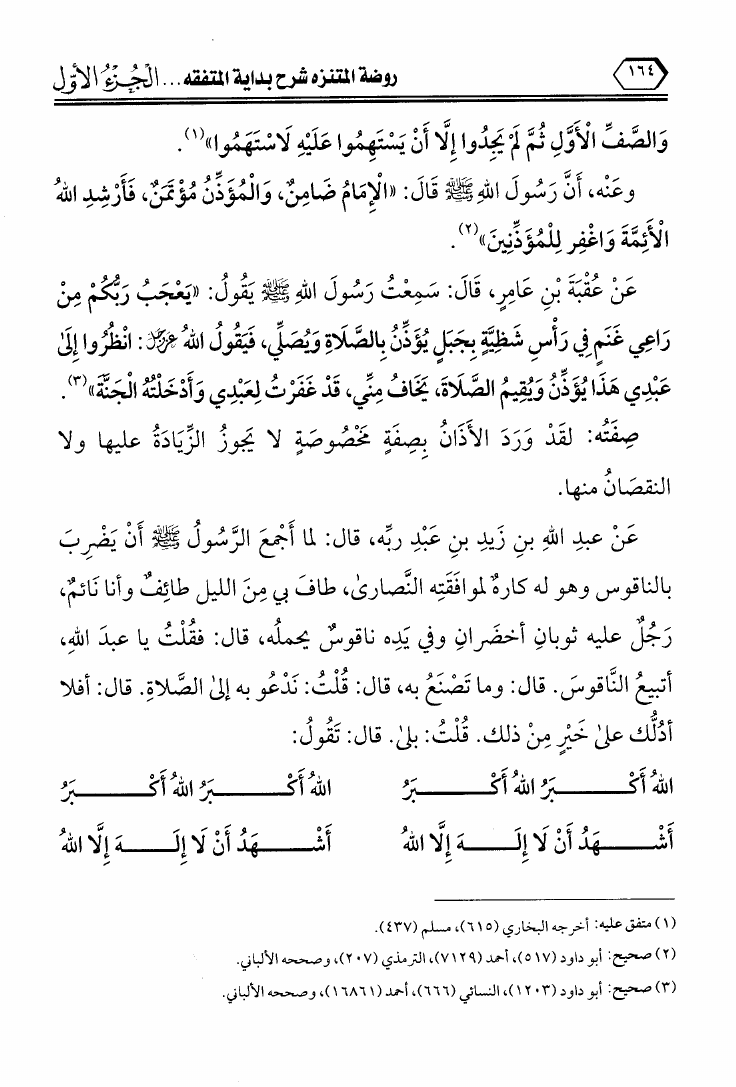 ١٦٤
روضة المتنزه شرح بداية المتفقه ... الْجُزْءُ الْأَوَّل
وَالصَّفِّ الْأَوَّلِ ثُمَّ لَمْ يَجِدُوا إِلَّا أَنْ يَسْتَهِمُوا عَلَيْهِ لَاسْتَهَمُوا»(١).
وعَنْه، أَنَّ رَسُولَ اللهِ ﷺ قَالَ: «الْإِمَامُ ضَامِنٌ، وَالْمُؤَذِّنُ مُؤْتَمَنٌ، فَأَرْشِدِ اللهُ
الْأَئِمَّةَ وَاغْفِر لِلْمُؤَذِّنِينَ»(٢).
عَنْ عُقْبَةَ بْنِ عَامِرٍ، قَالَ: سَمِعْتُ رَسُولَ اللهِ ﷺ يَقُولُ: «يَعْجَبُ رَبُّكُمْ مِنْ
رَاعِي غَنَمٍ فِي رَأْسِ شَظِيَّةٍ بِجَبَلٍ يُؤَذِّنُ بِالصَّلَاةِ وَيُصَلِّي، فَيَقُولُ اللهُ عَزَّ وَجَلَّ: انْظُرُوا إِلَىٰ
عَبْدِي هَذَا يُؤَذِّنُ وَيُقِيمُ الصَّلَاةَ، يَخَافُ مِنِّي، قَدْ غَفَرْتُ لِعَبْدِي وَأَدْخَلْتُهُ الْجَنَّةَ»(٣).
صِفَتُه: لقَدْ وَرَدَ الأَذَانُ بِصِفَةٍ مَخْصُوصَةٍ لا يَجوزُ الزِّيَادَةُ عليها ولا
النقصَانُ منها.
عَنْ عبدِ اللهِ بنِ زَيدِ بنِ عَبْدِ ربِّه، قال: لما أَجْمعَ الرَّسُولُ ﷺ أَنْ يَضْرِبَ
بالناقوس وهو له كارهٌ لموافَقَتِه النَّصارىٰ، طافَ بي مِنَ الليل طائِفٌ وأنا نَائمٌ،
رَجُلٌ عليه ثوبانِ أخضَرانِ وفي يَدِه ناقوسٌ يحملُه، قال: فقُلْتُ يا عبدَ اللهِ،
أتبيعُ النَّاقوسَ. قال: وما تَصْنَعُ به، قال: قُلْتُ: نَدْعُو به إلىٰ الصَّلاةِ. قال: أفلا
أدُلُّك علىٰ خَيْرٍ مِنْ ذلك. قُلْتُ: بلىٰ. قال: تَقُولُ:
اللهُ أَكْـــبَرُ اللهُ أَكْـــبَرُ اللهُ أَكْـــبَرُ اللهُ أَكْـــبَرُ
أَشْـــهَدُ أَنْ لَا إِلَـــهَ إِلَّا اللهُ أَشْـــهَدُ أَنْ لَا إِلَـــهَ إِلَّا اللهُ
(١) متفق عليه: أخرجه البخاري (٦١٥)، مسلم (٤٣٧).
(٢) صحيح: أبو داود (٥١٧)، أحمد (٧١٢٩)، الترمذي (٢٠٧)، وصححه الألباني.
(٣) صحيح: أبو داود (١٢٠٣)، النسائي (٦٦٦)، أحمد (١٦٨٦١)، وصححه الألباني.